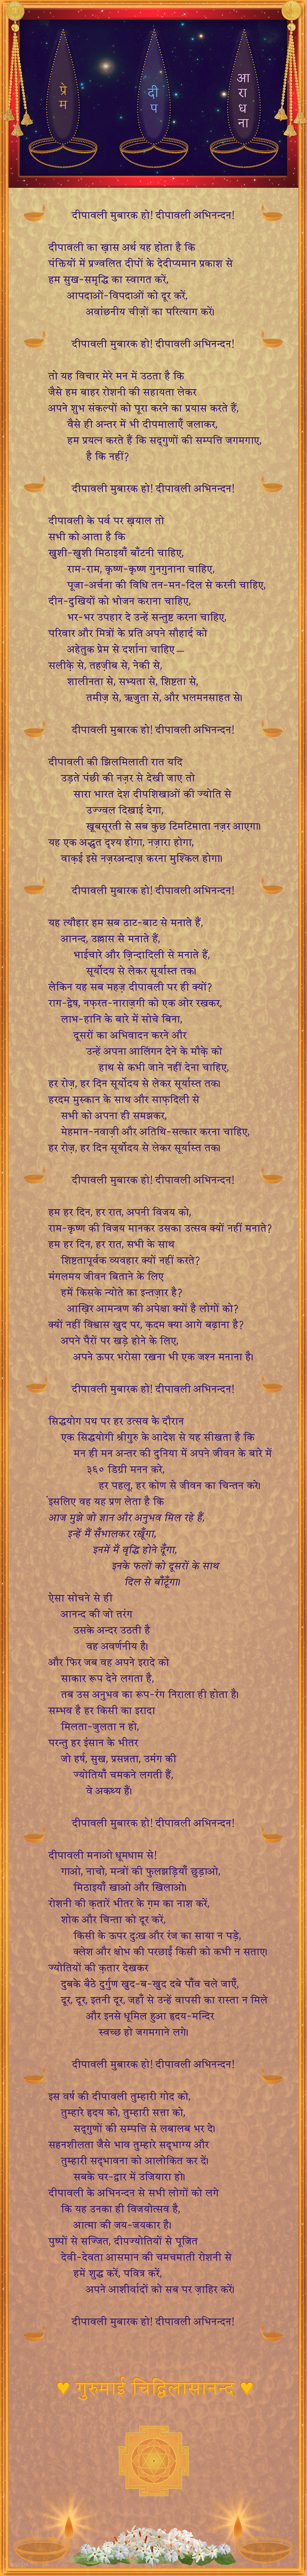 प्रेम
दीप
आराधना
दीपावली मुबारक हो! दीपावली अभिनन्दन!
दीपावली का ख़ास अर्थ यह होता है कि
पंक्तियों में प्रज्वलित दीपों के देदीप्यमान प्रकाश से
हम सुख-समृद्धि का स्वागत करें,
आपदाओं-विपदाओं को दूर करें,
अवांछनीय चीज़ों का परित्याग करें।
दीपावली मुबारक हो! दीपावली अभिनन्दन!
तो यह विचार मेरे मन में उठता है कि
जैसे हम बाहर रोशनी की सहायता लेकर
अपने शुभ संकल्पों को पूरा करने का प्रयास करते हैं,
वैसे ही अन्तर में भी दीपमालाएँ जलाकर,
हम प्रयत्न करते हैं कि सद्गुणों की सम्पत्ति जगमगाए,
है कि नहीं?
दीपावली मुबारक हो! दीपावली अभिनन्दन!
दीपावली के पर्व पर ख़याल तो
सभी को आता है कि
ख़ुशी-ख़ुशी मिठाइयाँ बाँटनी चाहिए,
राम-राम, कृष्ण-कृष्ण गुनगुनाना चाहिए,
पूजा-अर्चना की विधि तन-मन-दिल से करनी चाहिए,
दीन-दुखियों को भोजन कराना चाहिए,
भर-भर उपहार दे उन्हें सन्तुष्ट करना चाहिए,
परिवार और मित्रों के प्रति अपने सौहार्द को
अहेतुक प्रेम से दर्शाना चाहिए—
सलीक़े से, तहज़ीब से, नेकी से,
शालीनता से, सभ्यता से, शिष्टता से,
तमीज़ से, ऋजुता से, और भलमनसाहत से।
दीपावली मुबारक हो! दीपावली अभिनन्दन!
दीपावली की झिलमिलाती रात यदि
उड़ते पंछी की नज़र से देखी जाए तो
सारा भारत देश दीपशिखाओं की ज्योति से
उज्ज्वल दिखाई देगा,
ख़ूबसूरती से सब कुछ टिमटिमाता नज़र आएगा।
यह एक अद्भुत दृश्य होगा, नज़ारा होगा,
वाक़ई इसे नज़रअन्दाज़ करना मुश्किल होगा।
दीपावली मुबारक हो! दीपावली अभिनन्दन!
यह त्यौहार हम सब ठाट-बाट से मनाते हैं,
आनन्द, उल्लास से मनाते हैं,
भाईचारे और ज़िन्दादिली से मनाते हैं,
सूर्योदय से लेकर सूर्यास्त तक।
लेकिन यह सब महज़ दीपावली पर ही क्यों?
राग-द्वेष, नफ़रत-नाराज़गी को एक ओर रखकर,
लाभ-हानि के बारे में सोचे बिना,
दूसरों का अभिवादन करने और
उन्हें अपना आलिंगन देने के मौक़े को
हाथ से कभी जाने नहीं देना चाहिए,
हर रोज़, हर दिन सूर्योदय से लेकर सूर्यास्त तक।
हरदम मुस्कान के साथ और साफ़दिली से
सभी को अपना ही समझकर,
मेहमान-नवाज़ी और अतिथि-सत्कार करना चाहिए,
हर रोज़, हर दिन सूर्योदय से लेकर सूर्यास्त तक।
दीपावली मुबारक हो! दीपावली अभिनन्दन!
हम हर दिन, हर रात, अपनी विजय को,
राम-कृष्ण की विजय मानकर उसका उत्सव क्यों नहीं मनाते?
हम हर दिन, हर रात, सभी के साथ
शिष्टतापूर्वक व्यवहार क्यों नहीं करते?
मंगलमय जीवन बिताने के लिए
हमें किसके न्योते का इन्तज़ार है?
आख़िर आमन्त्रण की अपेक्षा क्यों है लोगों को?
क्यों नहीं विश्वास ख़ुद पर, क़दम क्या आगे बढ़ाना है?
अपने पैरों पर खड़े होने के लिए,
अपने ऊपर भरोसा रखना भी एक जश्न मनाना है।
दीपावली मुबारक हो! दीपावली अभिनन्दन!
सिद्धयोग पथ पर हर उत्सव के दौरान
एक सिद्धयोगी श्रीगुरु के आदेश से यह सीखता है कि
मन ही मन अन्तर की दुनिया में अपने जीवन के बारे में
३६० डिग्री मनन करे,
हर पहलू, हर कोण से जीवन का चिन्तन करे।
इसलिए वह यह प्रण लेता है कि
आज मुझे जो ज्ञान और अनुभव मिल रहे हैं,
इन्हें मैं सँभालकर रखूँगा,
इनमें मैं वृद्धि होने दूँगा,
इनके फलों को दूसरों के साथ
दिल से बाँटूँगा।
ऐसा सोचने से ही
आनन्द की जो तरंग
उसके अन्दर उठती है
वह अवर्णनीय है।
और फिर जब वह अपने इरादे को
साकार रूप देने लगता है,
तब उस अनुभव का रूप-रंग निराला ही होता है।
सम्भव है हर किसी का इरादा
मिलता-जुलता न हो,
परन्तु हर इंसान के भीतर
जो हर्ष, सुख, प्रसन्नता, उमंग की
ज्योतियाँ चमकने लगती हैं,
वे अकथ्य हैं।
दीपावली मुबारक हो! दीपावली अभिनन्दन!
दीपावली मनाओ धूमधाम से!
गाओ, नाचो, मन्त्रों की फुलझड़ियाँ छुड़ाओ,
मिठाइयाँ खाओ और खिलाओ।
रोशनी की क़तारें भीतर के ग़म का नाश करें,
शोक और चिन्ता को दूर करें,
किसी के ऊपर दुःख और रंज का साया न पड़े,
क्लेश और क्षोभ की परछाईं किसी को कभी न सताए।
ज्योतियों की क़तार देखकर
दुबके बैठे दुर्गुण ख़ुद-ब-ख़ुद दबे पाँव चले जाएँ,
दूर, दूर, इतनी दूर, जहाँ से उन्हें वापसी का रास्ता न मिले
और इनसे धूमिल हुआ हृदय-मन्दिर
स्वच्छ हो जगमगाने लगे।
दीपावली मुबारक हो! दीपावली अभिनन्दन!
इस वर्ष की दीपावली तुम्हारी गोद को,
तुम्हारे हृदय को, तुम्हारी सत्ता को,
सद्गुणों की सम्पत्ति से लबालब भर दे।
सहनशीलता जैसे भाव तुम्हारे सद्भाग्य और
तुम्हारी सद्भावना को आलोकित कर दें।
सबके घर-द्वार में उजियारा हो।
दीपावली के अभिनन्दन से सभी लोगों को लगे
कि यह उनका ही विजयोत्सव है,
आत्मा की जय-जयकार है।
पुष्पों से सज्जित, दीपज्योतियों से पूजित
देवी-देवता आसमान की चमचमाती रोशनी से
हमें शुद्ध करें, पवित्र करें,
अपने आशीर्वादों को सब पर ज़ाहिर करें।
दीपावली मुबारक हो! दीपावली अभिनन्दन!
♥ गुरुमाई चिद्विलासानन्द ♥